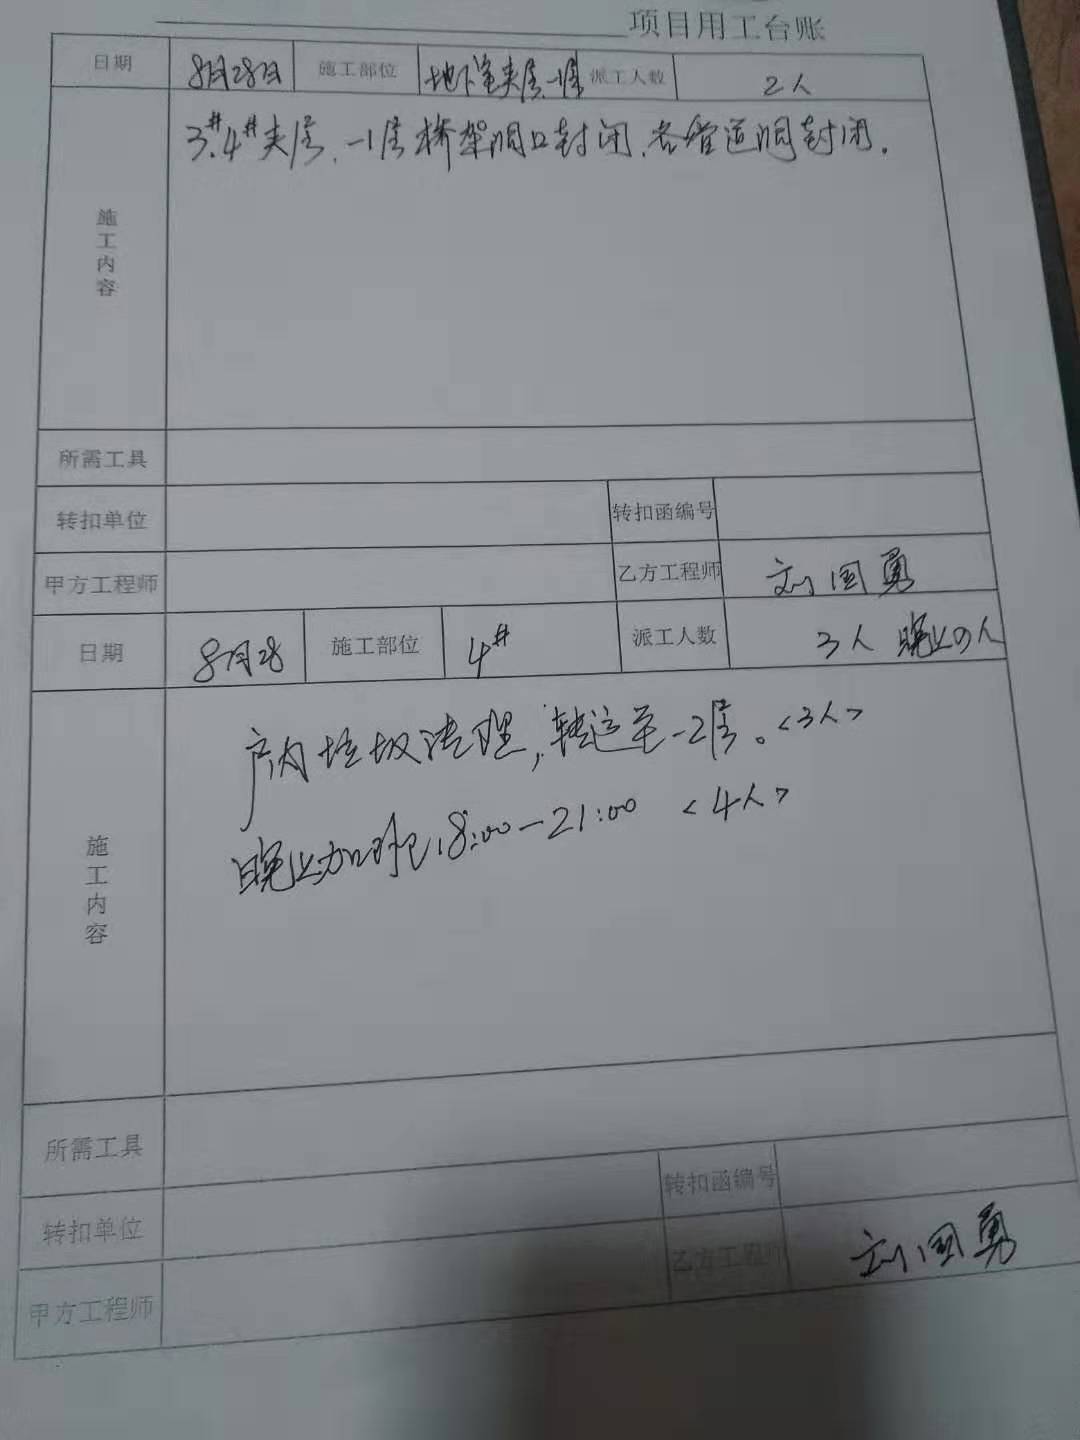 项目用工台账
日期 8月28日 施工部位 地下室夹层、-1层 派工人数 2人
施工内容
3#.4#夹层、-1层桥架洞口封闭、各管道洞封闭.
所需工具
转扣单位 转扣函编号
甲方工程师 乙方工程师 刘国勇
日期 8月28 施工部位 4# 派工人数 3人 晚上4人
施工内容
户内垃圾清理,转运至-2层。<3人>
晚上加班18:00-21:00 <4人>
所需工具
转扣单位 转扣函编号
甲方工程师 乙方工程师 刘国勇